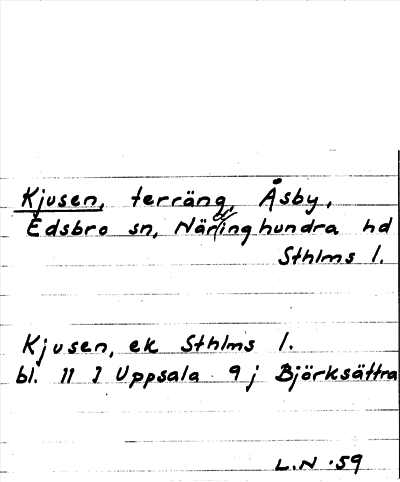 Kjusen, terräng, Åsby,
Edsbro sn, Närdinghundra hd
Sthlms l.
Kjusen, ek Sthlms l.
bl. 11 I Uppsala 9 j Björksättra
L.N -59